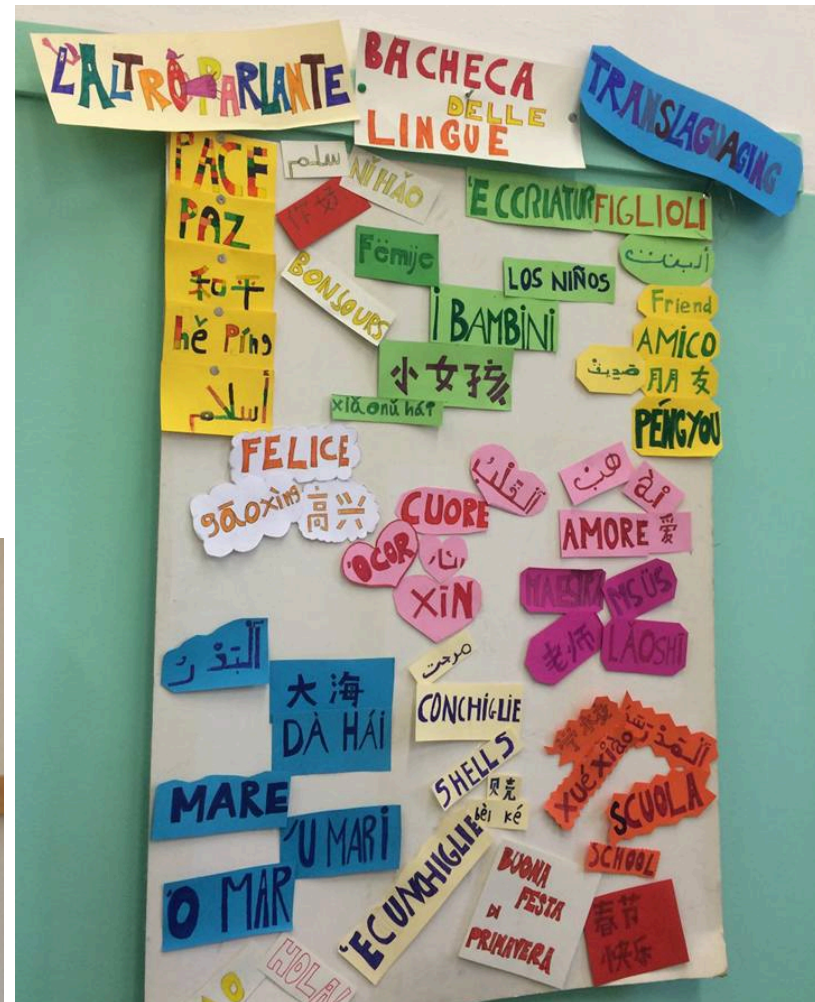 L'ALTROPARLANTE
BACHECA
DELLE
LINGUE
TRANSLAGUAGING
PACE
PAZ
和平
hě Píng
أسلام
سلم
NǏ HǍO
你好
'E CCRIATUR
FIGLIOLI
Fëmije
LOS NIÑOS
BONSOURS
I BAMBINI
小女孩
xiǎonǚ hái
Friend
AMICO
朋友
PÉNGYOU
FELICE
gāoxìng
高兴
CUORE
'O COR
XĪN
ài
AMORE
爱
MAESTRA
MSÜS
老师
LǍOSHĪ
大海
DÀ HÁI
MARE
'U MARI
'O MAR
CONCHIGLIE
SHELLS
贝壳
bèi ké
'E CUNCHIGLIE
xuéxiào
SCUOLA
SCHOOL
BUONA
FESTA
DI
PRIMAVERA
春节
快乐
HOLA!